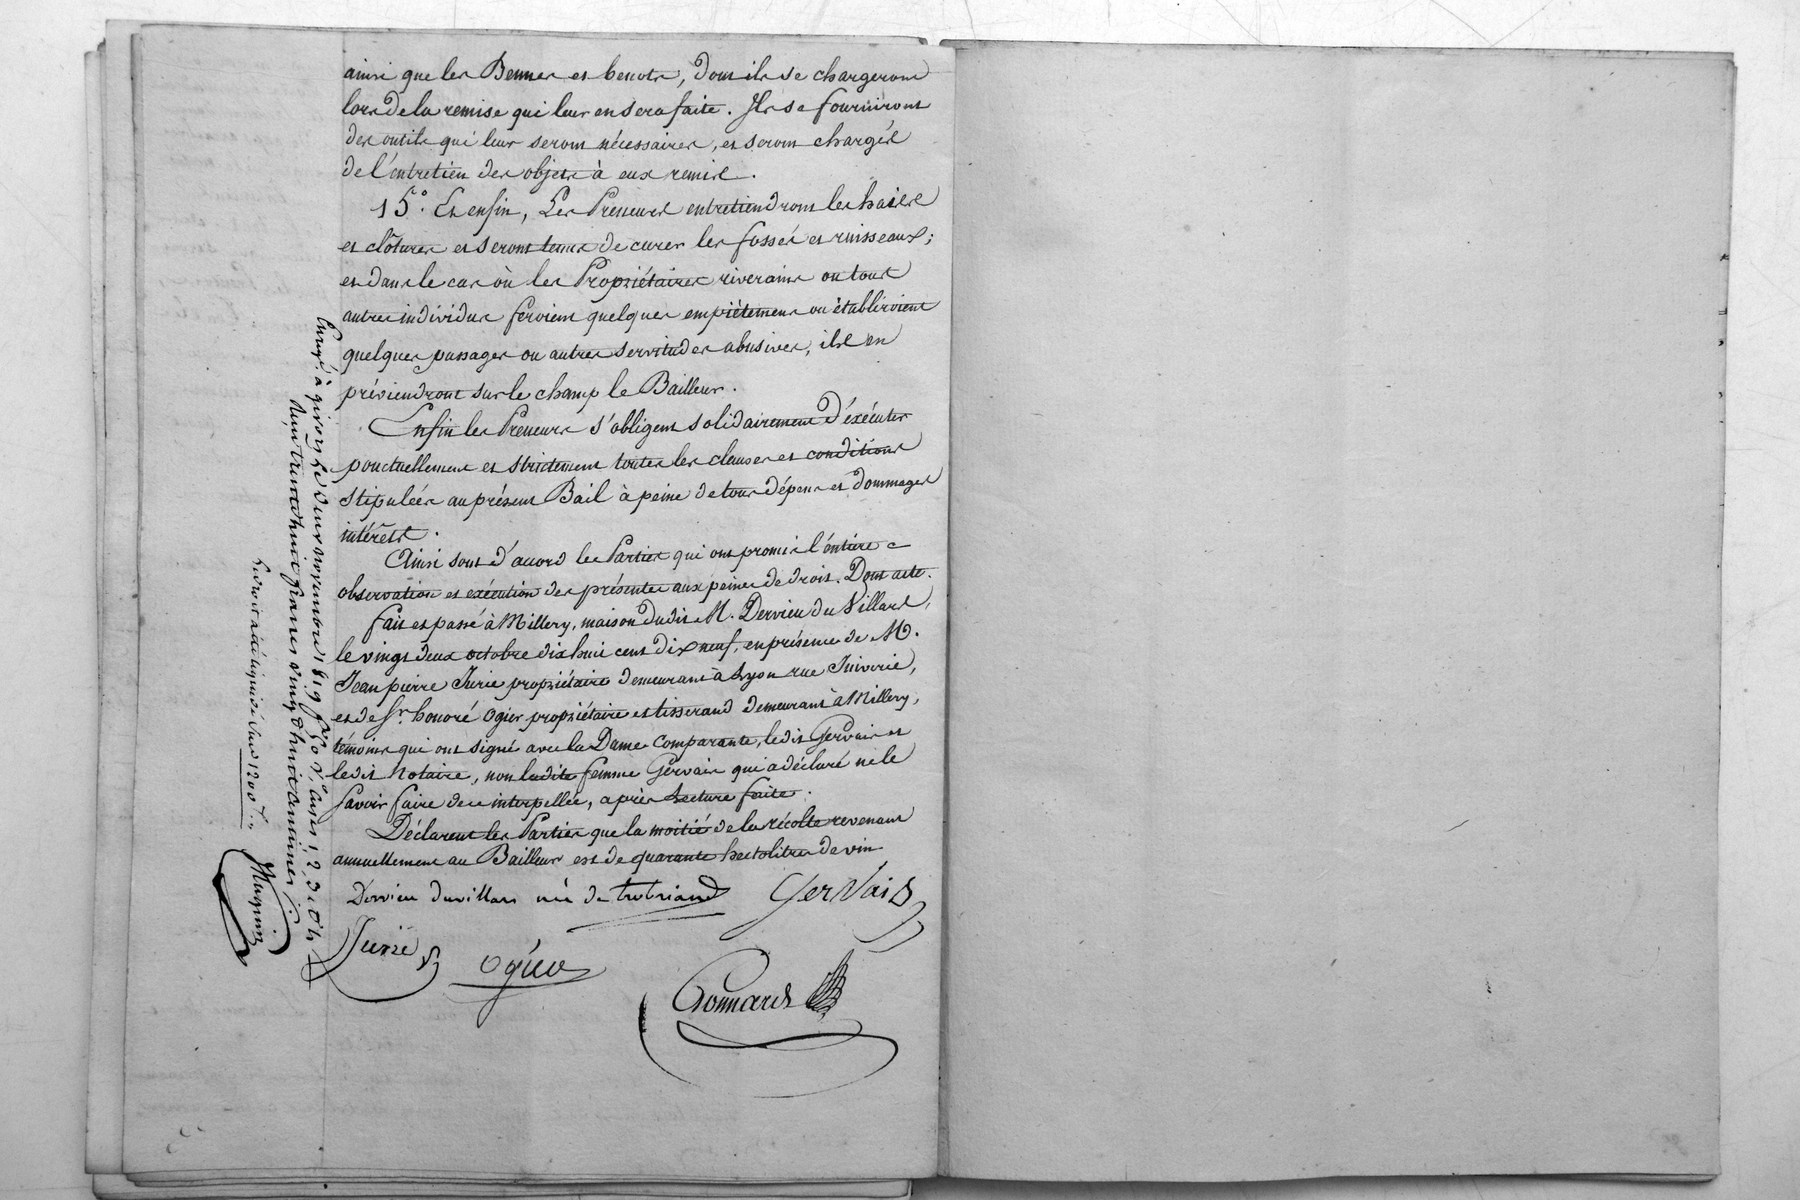 ainsi que les Bennes et benots, dont ils se chargeront
lors de la remise qui leur en sera faite. Ils se fourniront
des outils qui leur seront nécessaires, et seront chargés
de l'entretien des objets à eux remis.
15.° Et enfin, Les Preneurs entretiendront les haies
et clôtures et seront tenus de curer les fossés et ruisseaux;
et dans le cas où les Propriétaires riverains ou tous
autres individus feroient quelques empiètemens ou établiroient
quelques passages ou autres servitudes abusives, ils en
préviendront sur le champ le Bailleur.
Enfin les Preneurs s'obligent solidairement d'éxécuter
ponctuellement et strictement toutes les clauses et conditions
stipulées au présent Bail à peine de tous dépens et dommages
intérêts.
Ainsi sont d'accord les Parties qui ont promis l'entière
observation et exécution des présentes aux peines de droit. Dont acte.
fait et passé à Millery, maison dudit M. Dervieu du Villars,
le vingt deux octobre dix huit cent dix neuf, en présence de M.
Jean pierre Jurie propriétaire demeurant à Lyon rue Juiverie,
et de Sr. honoré Ogier propriétaire et tisserand demeurant à Millery,
témoins qui ont signé avec la Dame Comparante, ledit Gervais et
ledit Notaire, non ladite femme Gervais qui a déclaré ne le
savoir faire de ce interpellée, après lecture faite.
Déclarent les Parties que la moitié de la récolte revenant
annuellement au Bailleur est de quarante hectolitres de vin
Dervieu Duvillars née de trobriand
Gervais
Jurie
Ogier
Connard
Enregé. à givors le deux novembre 1819 fo. 50 Vo. Cases 1, 2, 3 et 4
Reçu trente huit francs vingt huit centimes